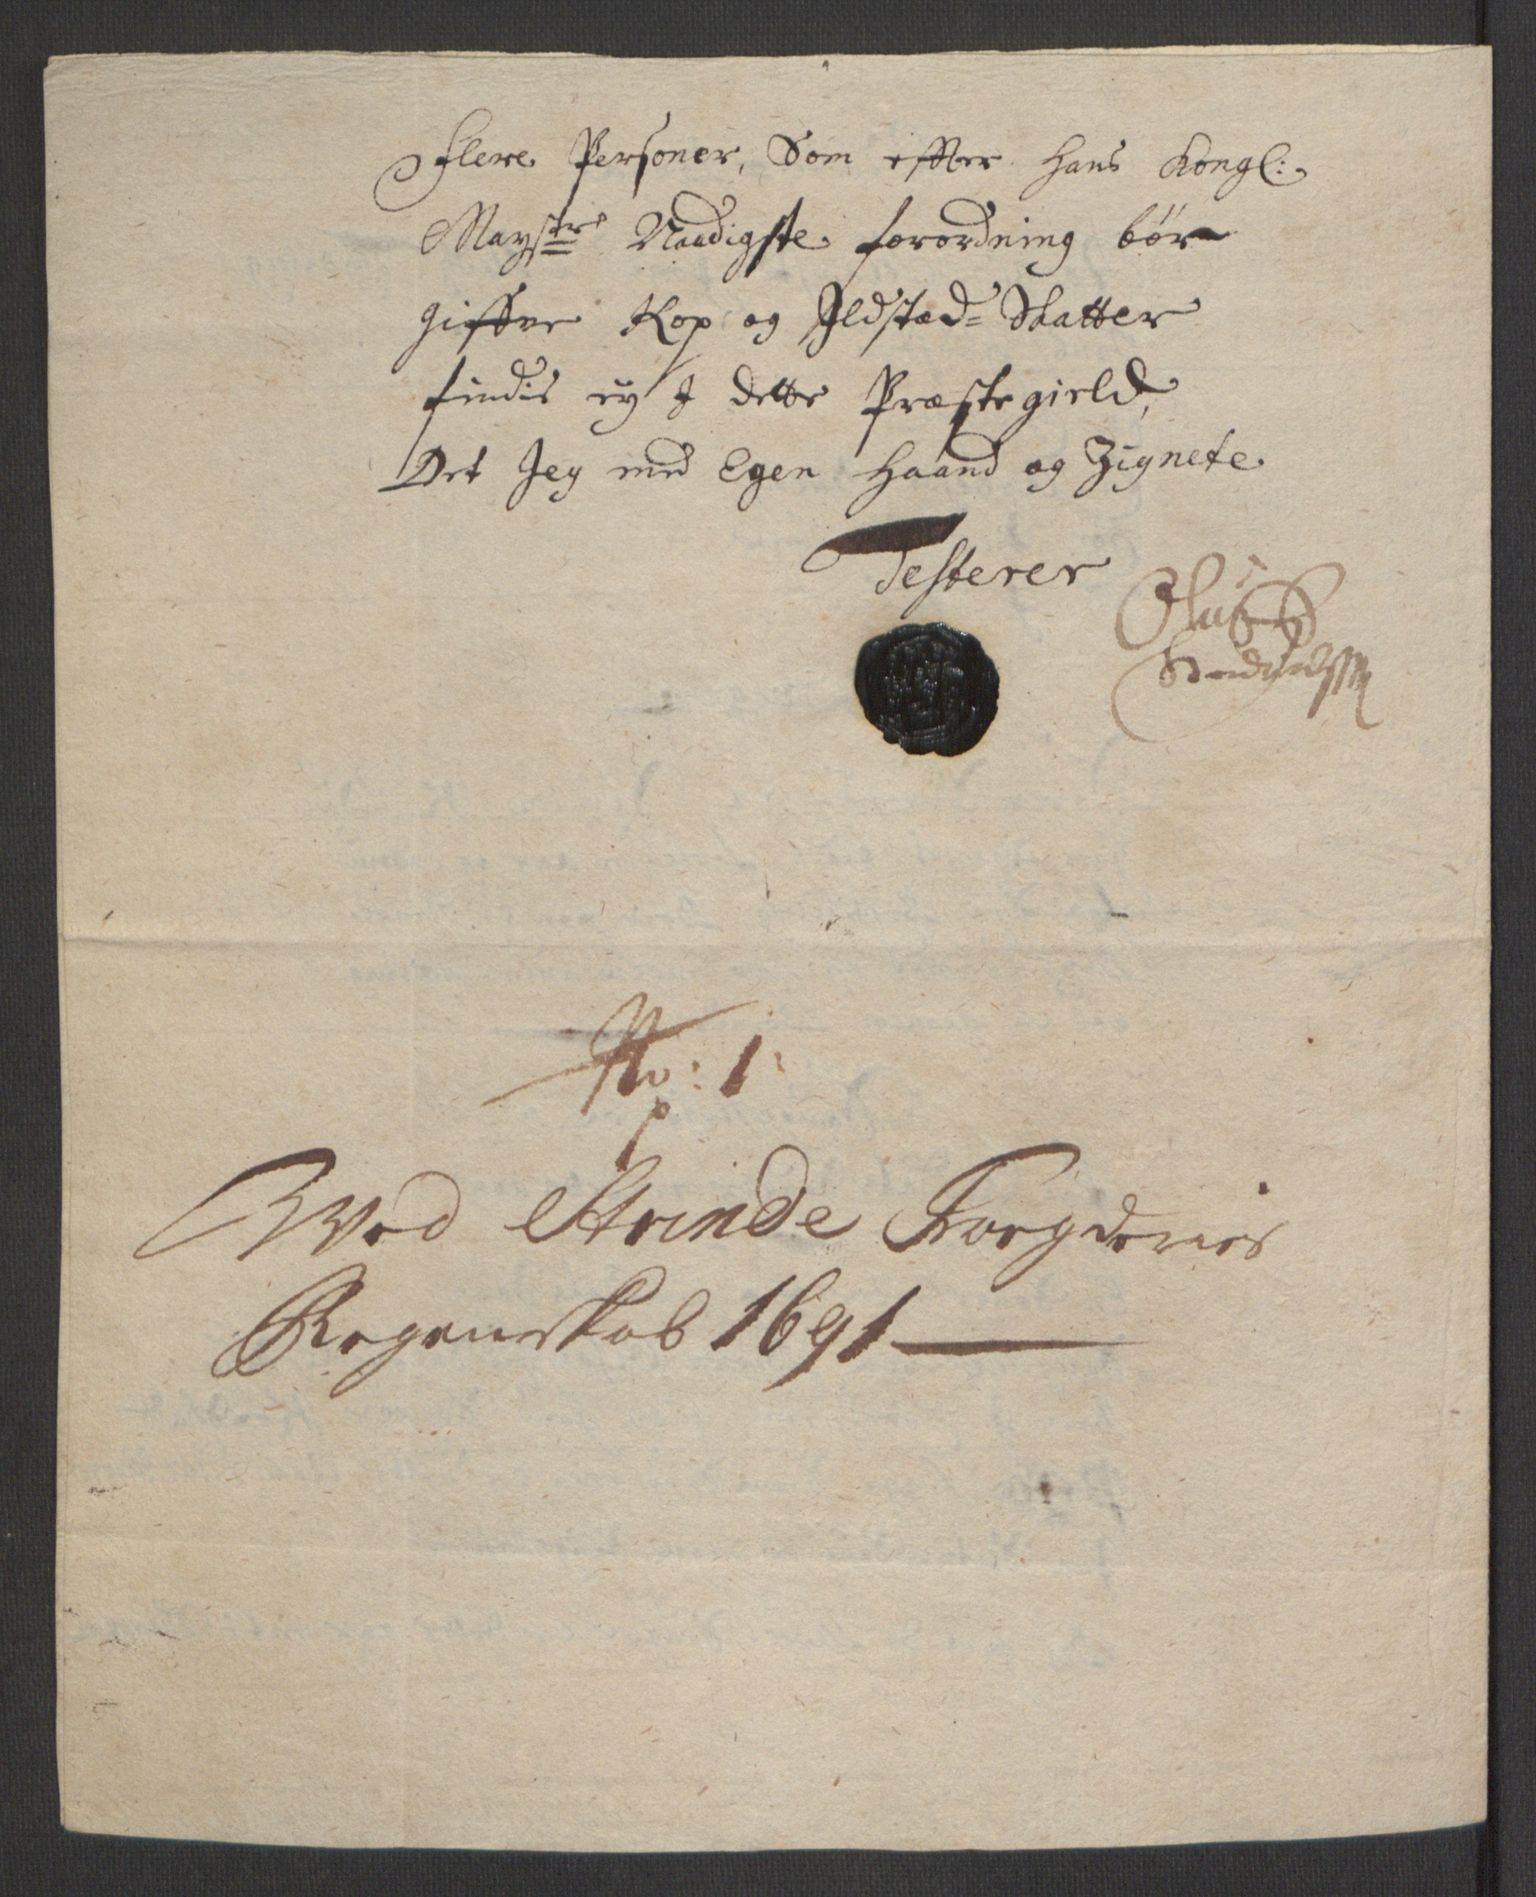 Flere Personer, Som effter hans Kongl:
Mayst:r Naadigste forordning bør
giffue Kop og Ildstæd= Skatter
findis ey I dette Præstegield,
Det Jeg med Egen Haand og Zignete
Testerer
Oluf
No: 1
Wed Strinde Foegderies
Regenskab 1691